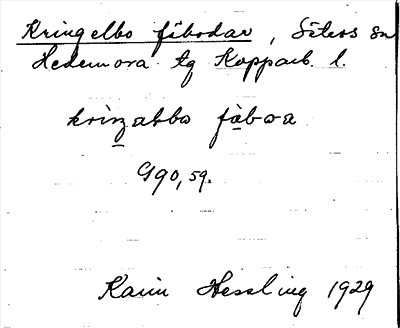 Kringelbo fäbodar, Säters sn
Hedemora tg Kopparb. l.
kriŋabbo fäboa
G90, 59.
Karin Hessling 1929